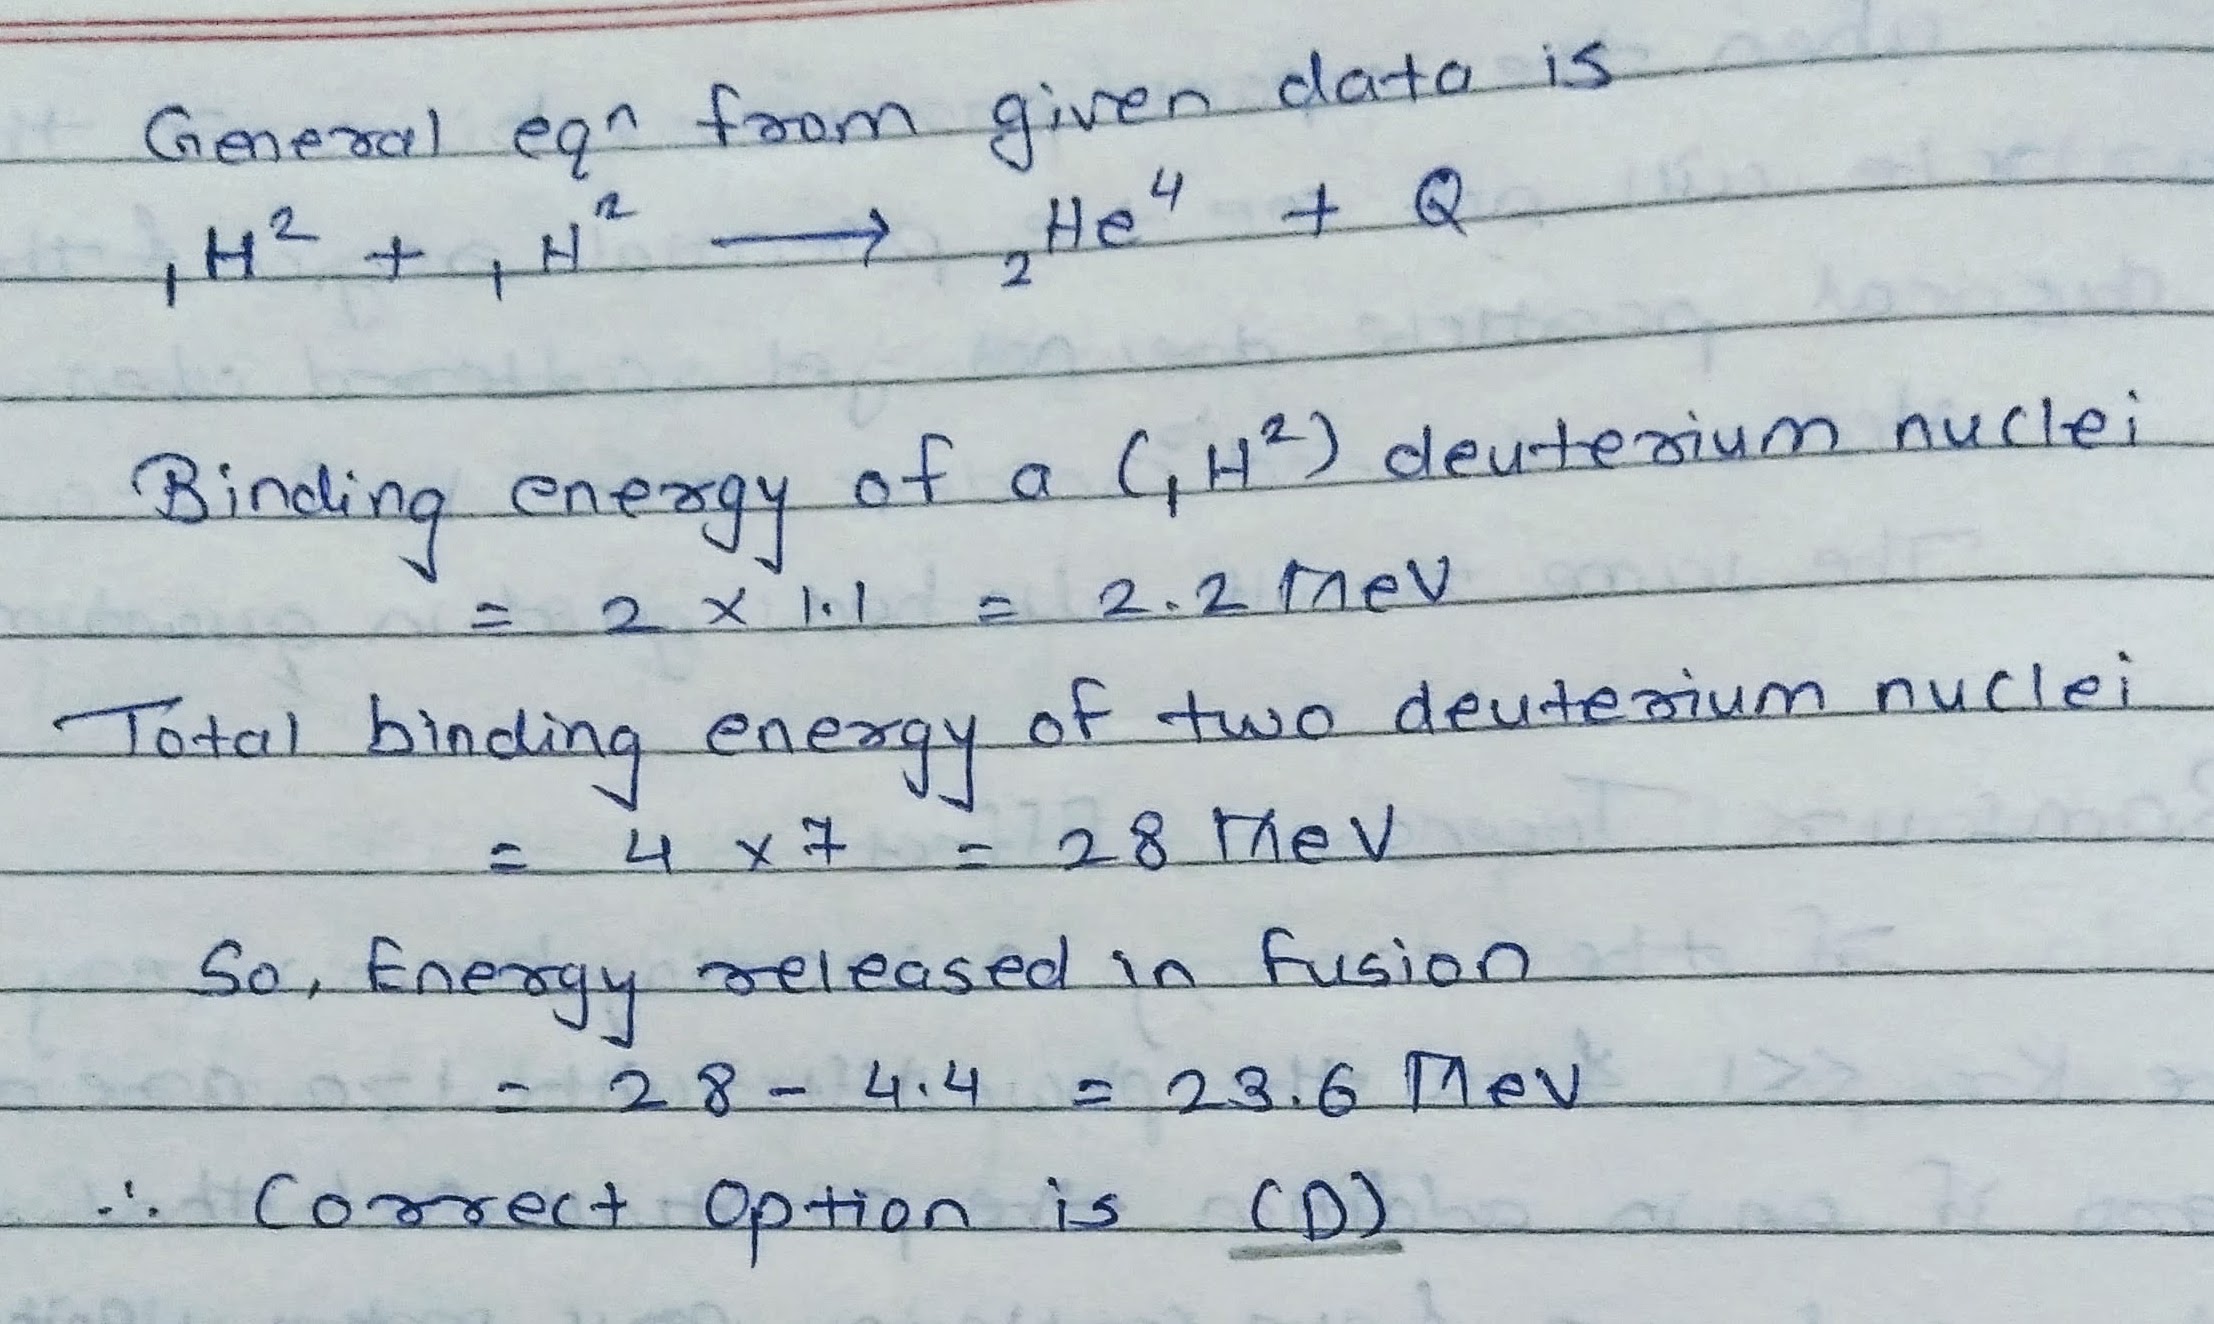 General eqn from given data is
₁H² + ₁H² → ₂He⁴ + Q
Binding energy of a (₁H²) deuterium nuclei
= 2 × 1.1 = 2.2 MeV
Total binding energy of two deuterium nuclei
= 4 × 7 = 28 MeV
So, Energy released in fusion
= 28 - 4.4 = 23.6 MeV
∴ Correct Option is (D)